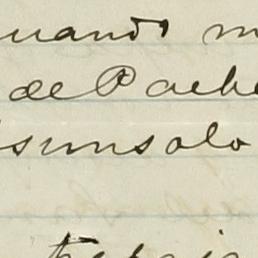 uando m
de Pache
sunsolo